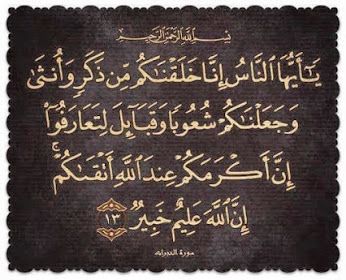 بسم الله الرحمن الرحيم
يَٰٓأَيُّهَا ٱلنَّاسُ إِنَّا خَلَقۡنَٰكُم مِّن ذَكَرٖ وَأُنثَىٰ
وَجَعَلۡنَٰكُمۡ شُعُوبٗا وَقَبَآئِلَ لِتَعَارَفُوٓاْۚ
إِنَّ أَكۡرَمَكُمۡ عِندَ ٱللَّهِ أَتۡقَىٰكُمۡۚ
إِنَّ ٱللَّهَ عَلِيمٌ خَبِيرٞ ١٣
سورة الحجرات